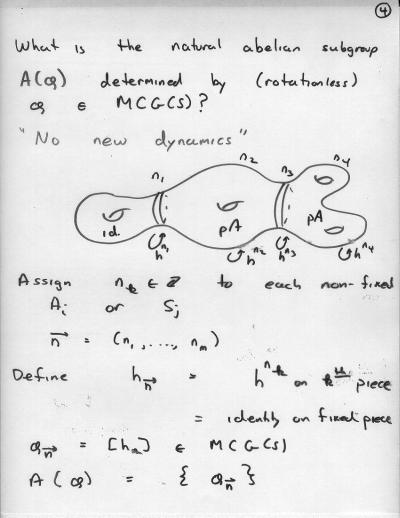 ④
What is the natural abelian subgroup
A(φ) determined by (rotationless)
φ ∈ MCG(S)?
"No new dynamics"
n₁ n₂ n₃ n₄
id. pA pA
h^n₁ h^n₂ h^n₃ h^n₄
Assign n_k ∈ Z to each non-fixed
A_i or S_j
n⃗ = (n₁, ..., n_m)
Define h_n⃗ = h^n_k on k^th piece
= identity on fixed piece
φ_n⃗ = [h_n⃗] ∈ MCG(S)
A(φ) = {φ_n⃗}